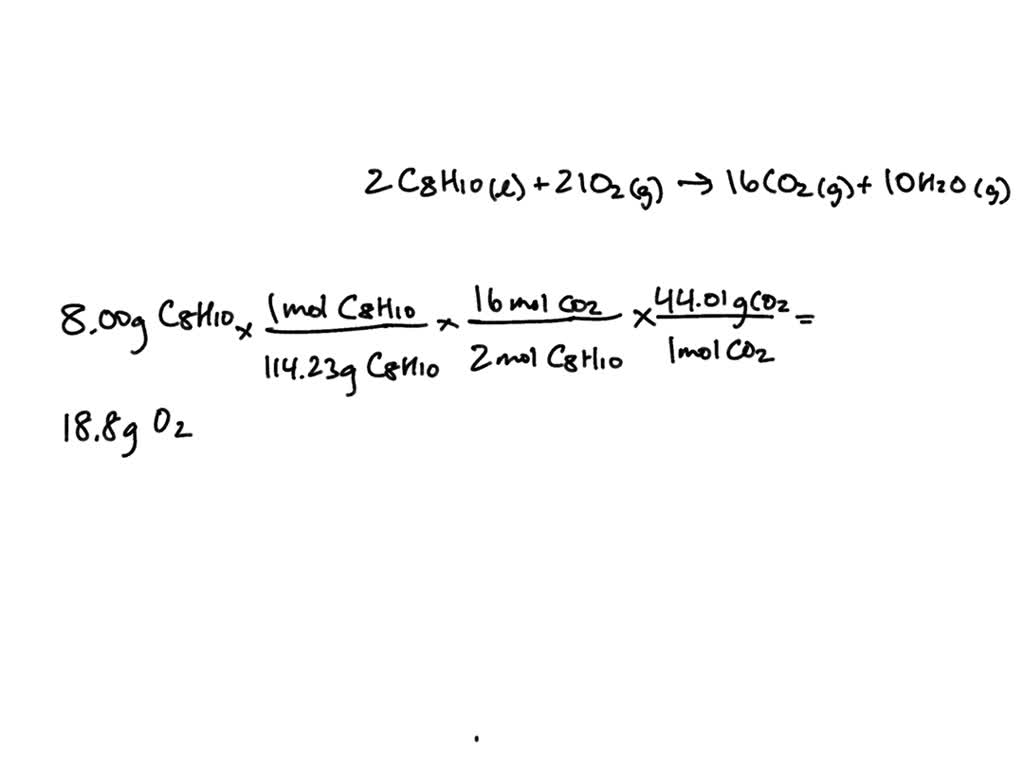 2 C8H10(l) + 21O2(g) → 16CO2(g) + 10H2O(g)
8.00g C8H10 × 1mol C8H10 / 114.23g C8H10 × 16 mol CO2 / 2 mol C8H10 × 44.01gCO2 / 1mol CO2 =
18.8g O2